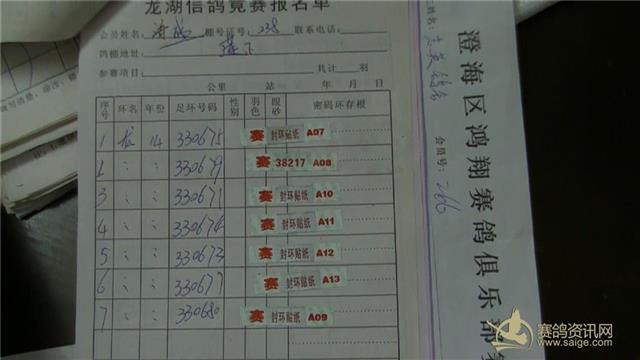 龙湖信鸽竞赛报名单
会员姓名: 棚号证号: 238 联系电话:
鸽棚地址:
参赛项目: 共计 羽
公里 站 年 月 日
序号 环名 年份 足环号码 性别 羽色 眼砂 密码环存根
1 14 330675 赛 封环贴纸 A07
2 〃 〃 330679 赛 38217 A08
3 〃 〃 330671 赛 封环贴纸 A10
4 〃 〃 330674 赛 封环贴纸 A11
5 〃 〃 330673 赛 封环贴纸 A12
6 〃 〃 330677 赛 封环贴纸 A13
7 330680 赛 封环贴纸 A09
澄海区鸿翔赛鸽俱乐部
姓名:
会员号: 266
赛鸽资讯网
www.saige.com